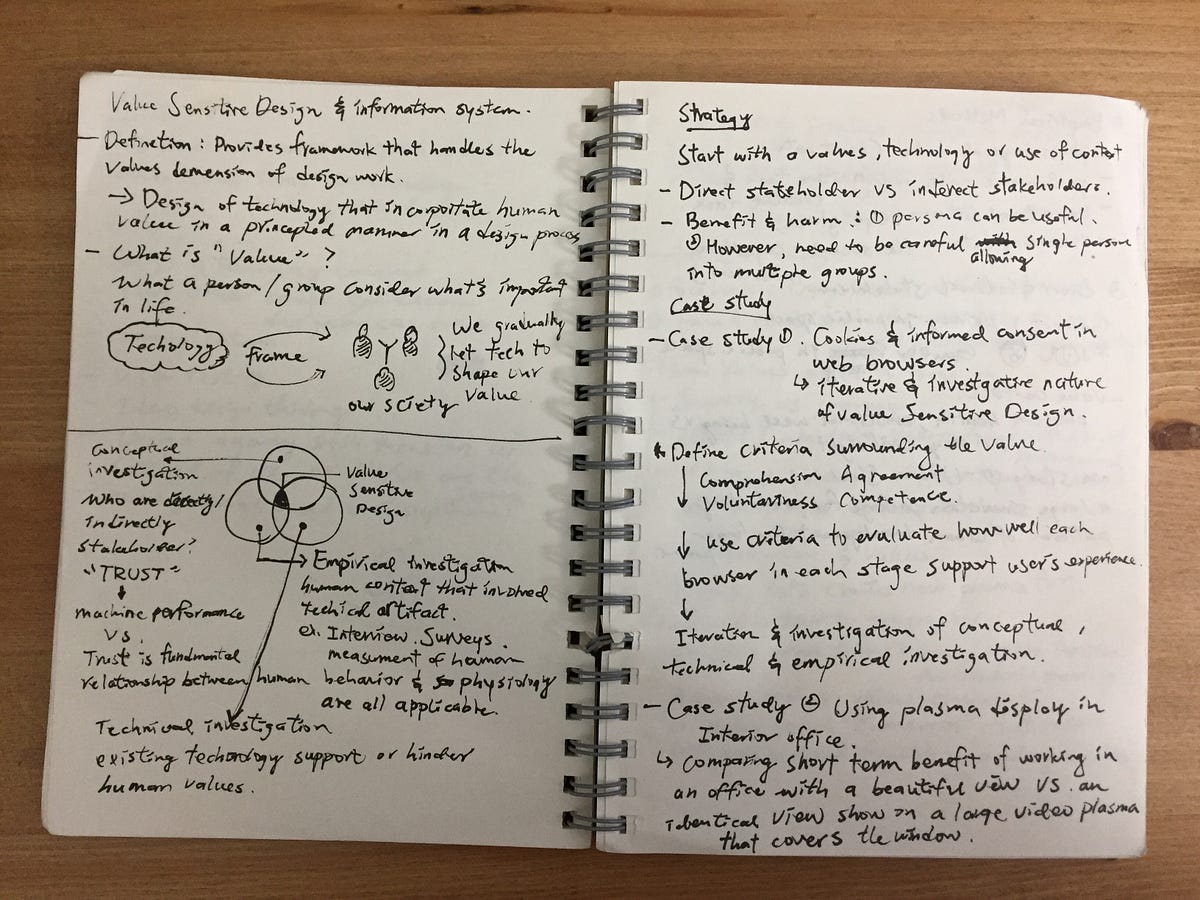 Value Sensitive Design & information system.
— Definction : Provides framework that handles the
values demension of design work.
→ Design of technology that incorportate human
value in a princepted manner in a design process
— What is "Value" ?
What a person/group consider what's important
in life.
Techology
frame
our sciety
We gradually
let tech to
shape our
value.
Conceptual
investigation
Who are directly/
indirectly
stakeholder?
"TRUST"
↓
machine performance
VS.
Trust is fundmental
relationship between human
Value
Sensitive
Design
→ Empirical investigation
human context that involved
techical artifact.
ex. Interview. Surveys.
measument of human
behavior & physiology
are all applicable.
Technical investigation
existing techonology support or hinder
human values.
Strategy
Start with a values, technology or use of context
— Direct stateholder VS interect stakeholders.
— Benefit & harm : ① persma can be useful.
② However, need to be careful allowing single person
into multiple groups.
Case study
— Case study ①. Cookies & informed consent in
web browsers.
↳ iterative & investgative nature
of value Sensitive Design.
* Define criteria surrounding the value.
↓ Comprehension Agreement
Voluntariness Competence.
↓ use criteria to evaluate how well each
browser in each stage support user's experience.
↓
Iteration & investigation of conceptual,
technical & empirical investigation.
— Case study ② Using plasma display in
Interior office.
↳ Comparing short term benefit of working in
an office with a beautiful view VS. an
identical view show on a large video plasma
that covers the window.